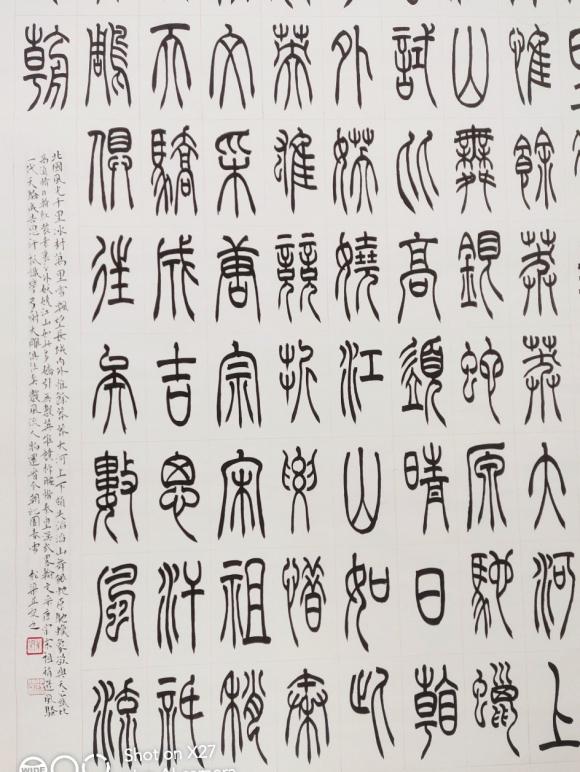 惟餘莽莽大河上
山舞銀蛇原馳蠟
試比高須晴日看
外妖嬈江山如此
英雄競折腰惜秦
文采唐宗宋祖稍
天驕成吉思汗
雕俱往矣數風流
朝
北國風光千里冰封萬里雪飄望長城內外惟餘莽莽大河上下頓失滔滔山舞銀蛇原馳蠟象欲與天公試比
高須晴日看紅裝素裹分外妖嬈江山如此多嬌引無數英雄競折腰惜秦皇漢武略輸文采唐宗宋祖稍遜風騷
一代天驕成吉思汗只識彎弓射大雕俱往矣數風流人物還看今朝沁園春雪
WIDE
Shot on X27